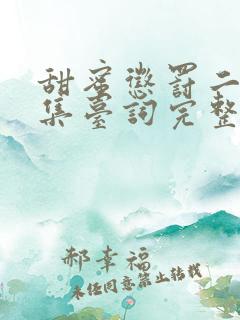 甜蜜懲罰二
集臺詞完整
郝幸福
未经同意禁止转载